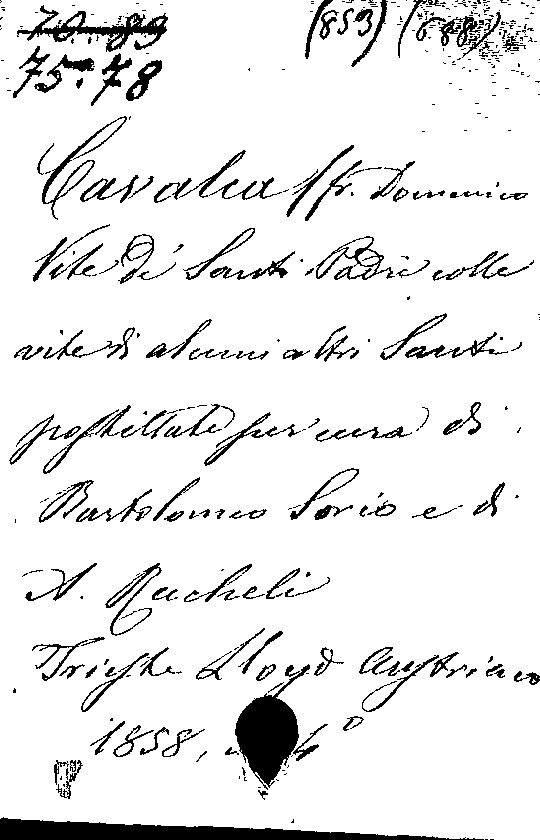 70.89 (853) (688)
75.78
Cavalca /fr. Domenico
Vite de' Santi Padri colle
vite di alcuni altri Santi
postillate per cura di
Bartolomeo Sorio e di
A. Racheli
Trieste Lloyd Austriaco
1858, 4°